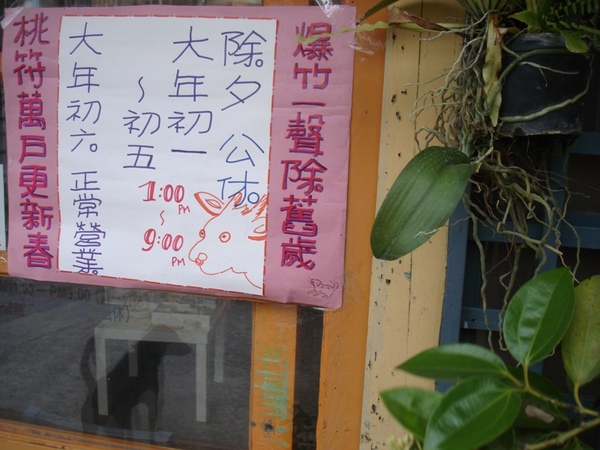 爆竹一聲除舊歲
除夕 公休。
大年初一
～初五
1:00 PM
～
9:00 PM
大年初六。正常營業。
桃符萬戶更新春